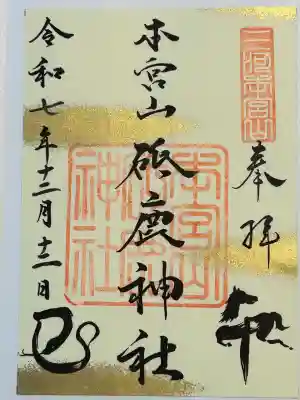 三河本宮山
奉拝
本宮山 砥鹿神社
本宮山
神社
令和七年十二月十三日